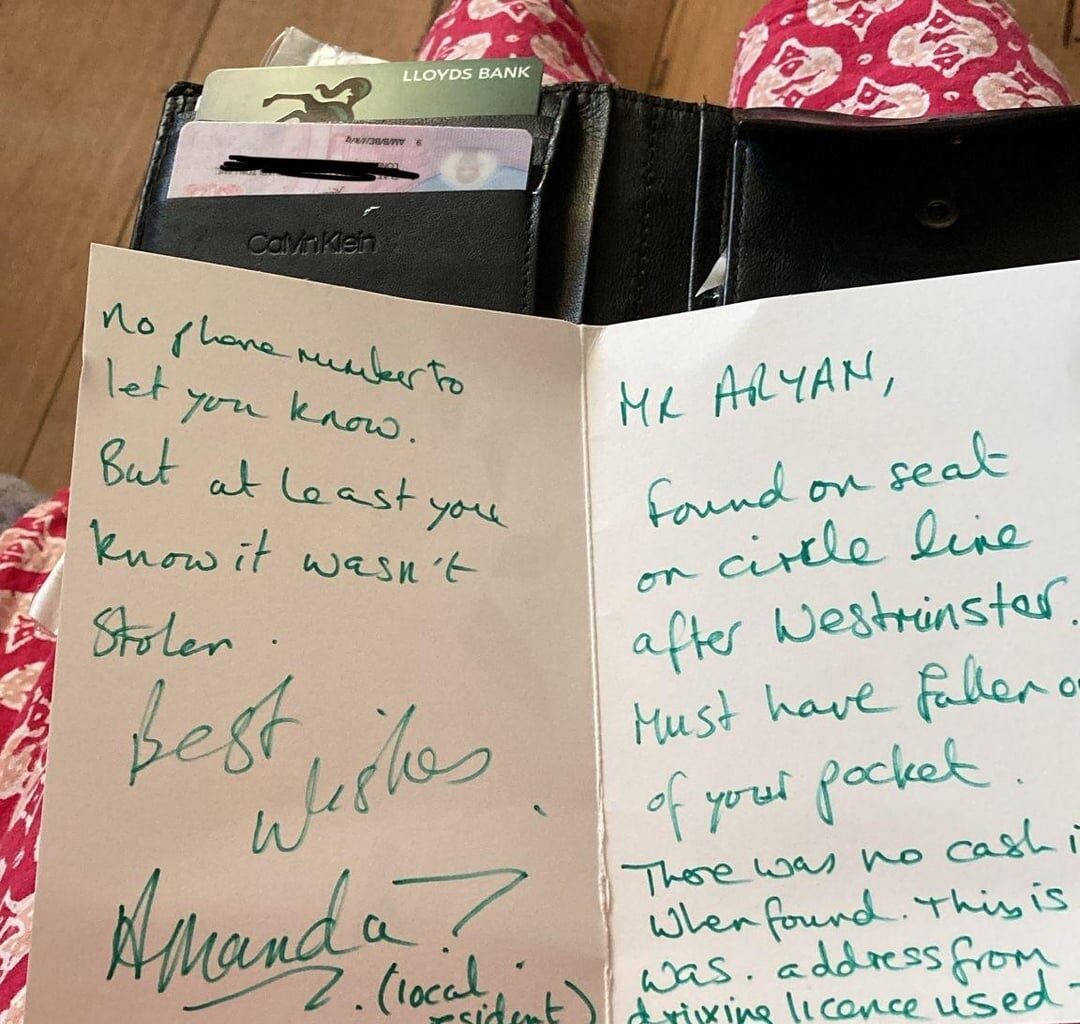 LLOYDS BANK
Calvin Klein
MR ARYAN,
Found on seat
on circle line
after Westminster.
Must have fallen
of your pocket.
There was no cash
when found. This is
was. address from
driving licence used -
No phone number to
let you know.
But at least you
know it wasn't
stolen.
Best
wishes.
Amanda
(local
resident)